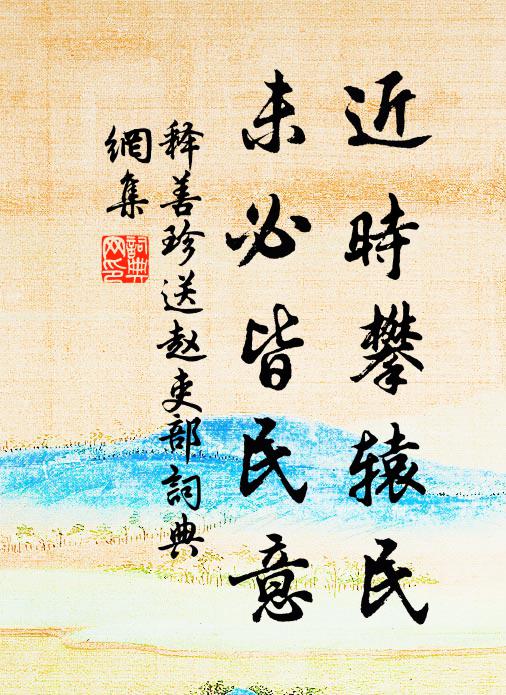 近時攀辕民
未必皆民意
释善珍送赵吏部詞典
網集
詞典
网印